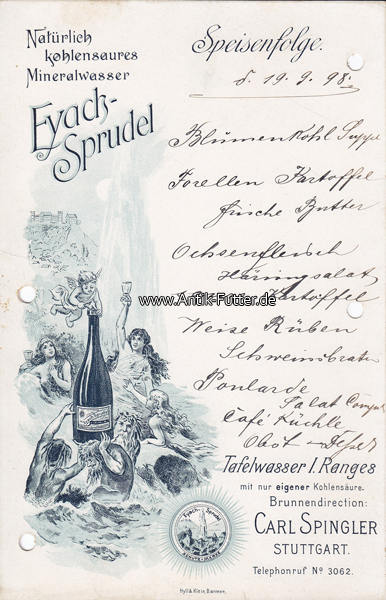 Natürlich
kohlensaures
Mineralwasser
Eyach-
Sprudel
Speisenfolge.
d. 19. 9. 98.
Blumenkohl Suppe
Forellen Kartoffel
frische Butter
Ochsenfleisch
Häringsalat
www.Antik-Futter.de
Kartoffel
Weise Rüben
Schweinsbraten
Poularde
Salat Compot
Café Küchle
Obst
Tafelwasser I. Ranges
mit nur eigener Kohlensäure.
Brunnendirection:
CARL SPINGLER
STUTTGART.
Telephonruf Nº 3062.
Eyach-Sprudel
SCHUTZ-MARKE
Hyll & Klein, Barmen.